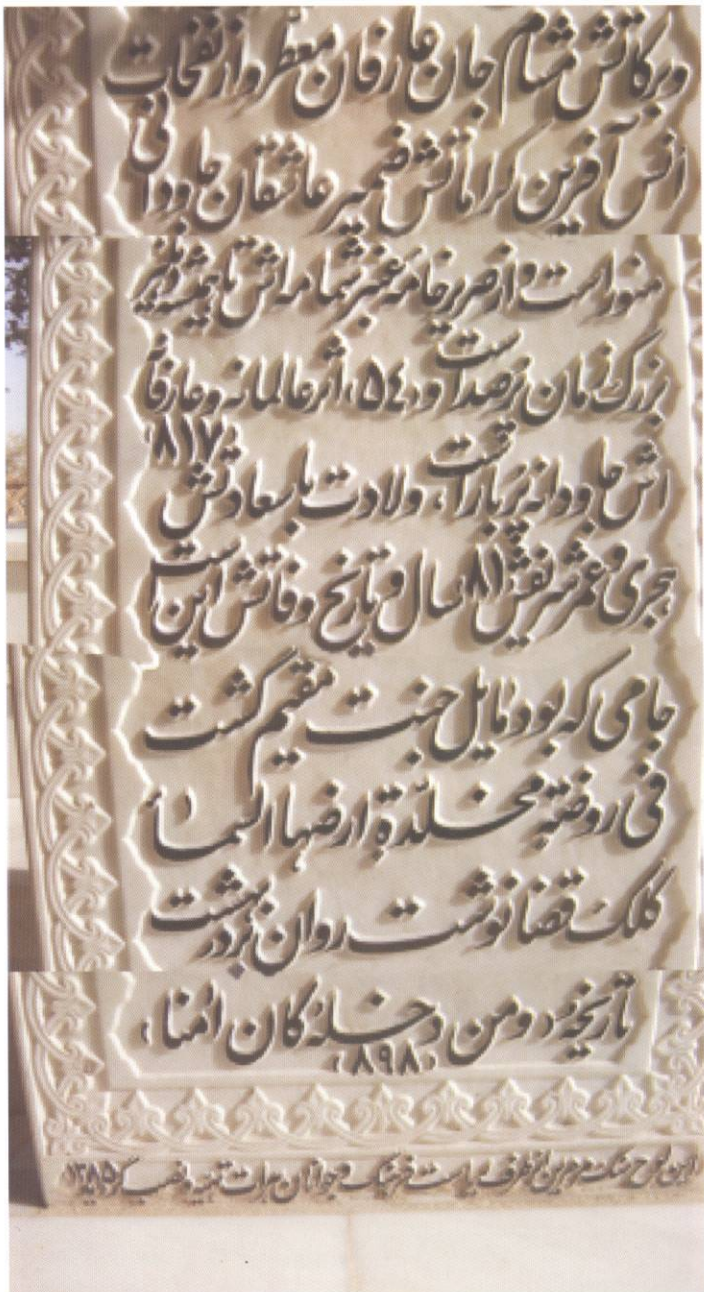 وبرکاتش مشام جان عارفان معطر واز نفحات
انس آفرین کراماتش ضمیر عاشقان جاودانی
منور است واز صریر خامهٔ عنبر شمامه اش تا همیشه و نیز
بزرگ زمان پرصداست و (۵٤) اثر عالمانه و عارفانه
اش جاودانه پُر بار است، ولادت با سعادتش (۸۱۷)
هجری و عمر شریفش ۸۱ سال و تاریخ وفاتش این است
جامی که بود مایل جنت مقیم گشت
فی روضة مخلّدة ارضها السمأ
کلک قضا نوشت روان بر در بهشت
تاریخهُ (ومن دخلهُ کان اٰمنا)
(۸۹۸)
این لوح سنگ مرمرین از طرف ریاست فرهنگ و جوانان هرات تهیه و نصب گردید ۱۳۸۵